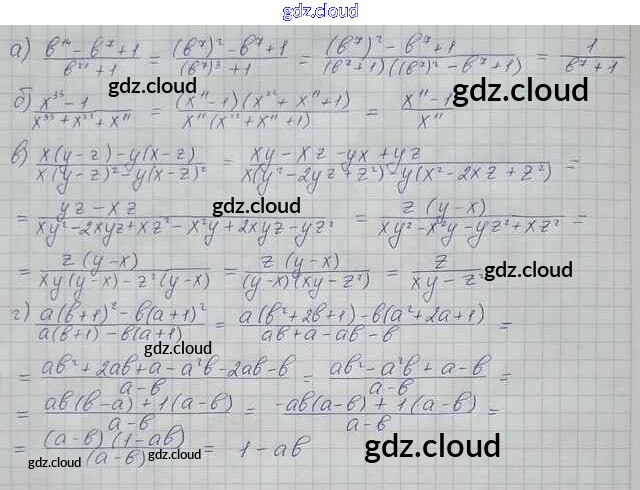 gdz.cloud
а) (b¹⁴ − b⁷ + 1)/(b²¹ + 1) = ((b⁷)² − b⁷ + 1)/((b⁷)³ + 1) = ((b⁷)² − b⁷ + 1)/((b⁷ + 1)((b⁷)² − b⁷ + 1)) = 1/(b⁷ + 1)
gdz.cloud gdz.cloud
б) (x³³ − 1)/(x³³ + x²² + x¹¹) = ((x¹¹ − 1)(x²² + x¹¹ + 1))/(x¹¹(x²² + x¹¹ + 1)) = (x¹¹ − 1)/x¹¹
в) (x(y − z) − y(x − z))/(x(y − z)² − y(x − z)²) = (xy − xz − yx + yz)/(x(y² − 2yz + z²) − y(x² − 2xz + z²)) =
gdz.cloud
= (yz − xz)/(xy² − 2xyz + xz² − x²y + 2xyz − yz²) = (z(y − x))/(xy² − x²y − yz² + xz²) =
= (z(y − x))/(xy(y − x) − z²(y − x)) = (z(y − x))/((y − x)(xy − z²)) = z/(xy − z²)
gdz.cloud gdz.cloud
г) (a(b + 1)² − b(a + 1)²)/(a(b + 1) − b(a + 1)) = (a(b² + 2b + 1) − b(a² + 2a + 1))/(ab + a − ab − b) =
gdz.cloud
= (ab² + 2ab + a − a²b − 2ab − b)/(a − b) = (ab² − a²b + a − b)/(a − b) =
= (ab(b − a) + 1(a − b))/(a − b) = (−ab(a − b) + 1(a − b))/(a − b) =
= ((a − b)(1 − ab))/(a − b) = 1 − ab
gdz.cloud gdz.cloud gdz.cloud